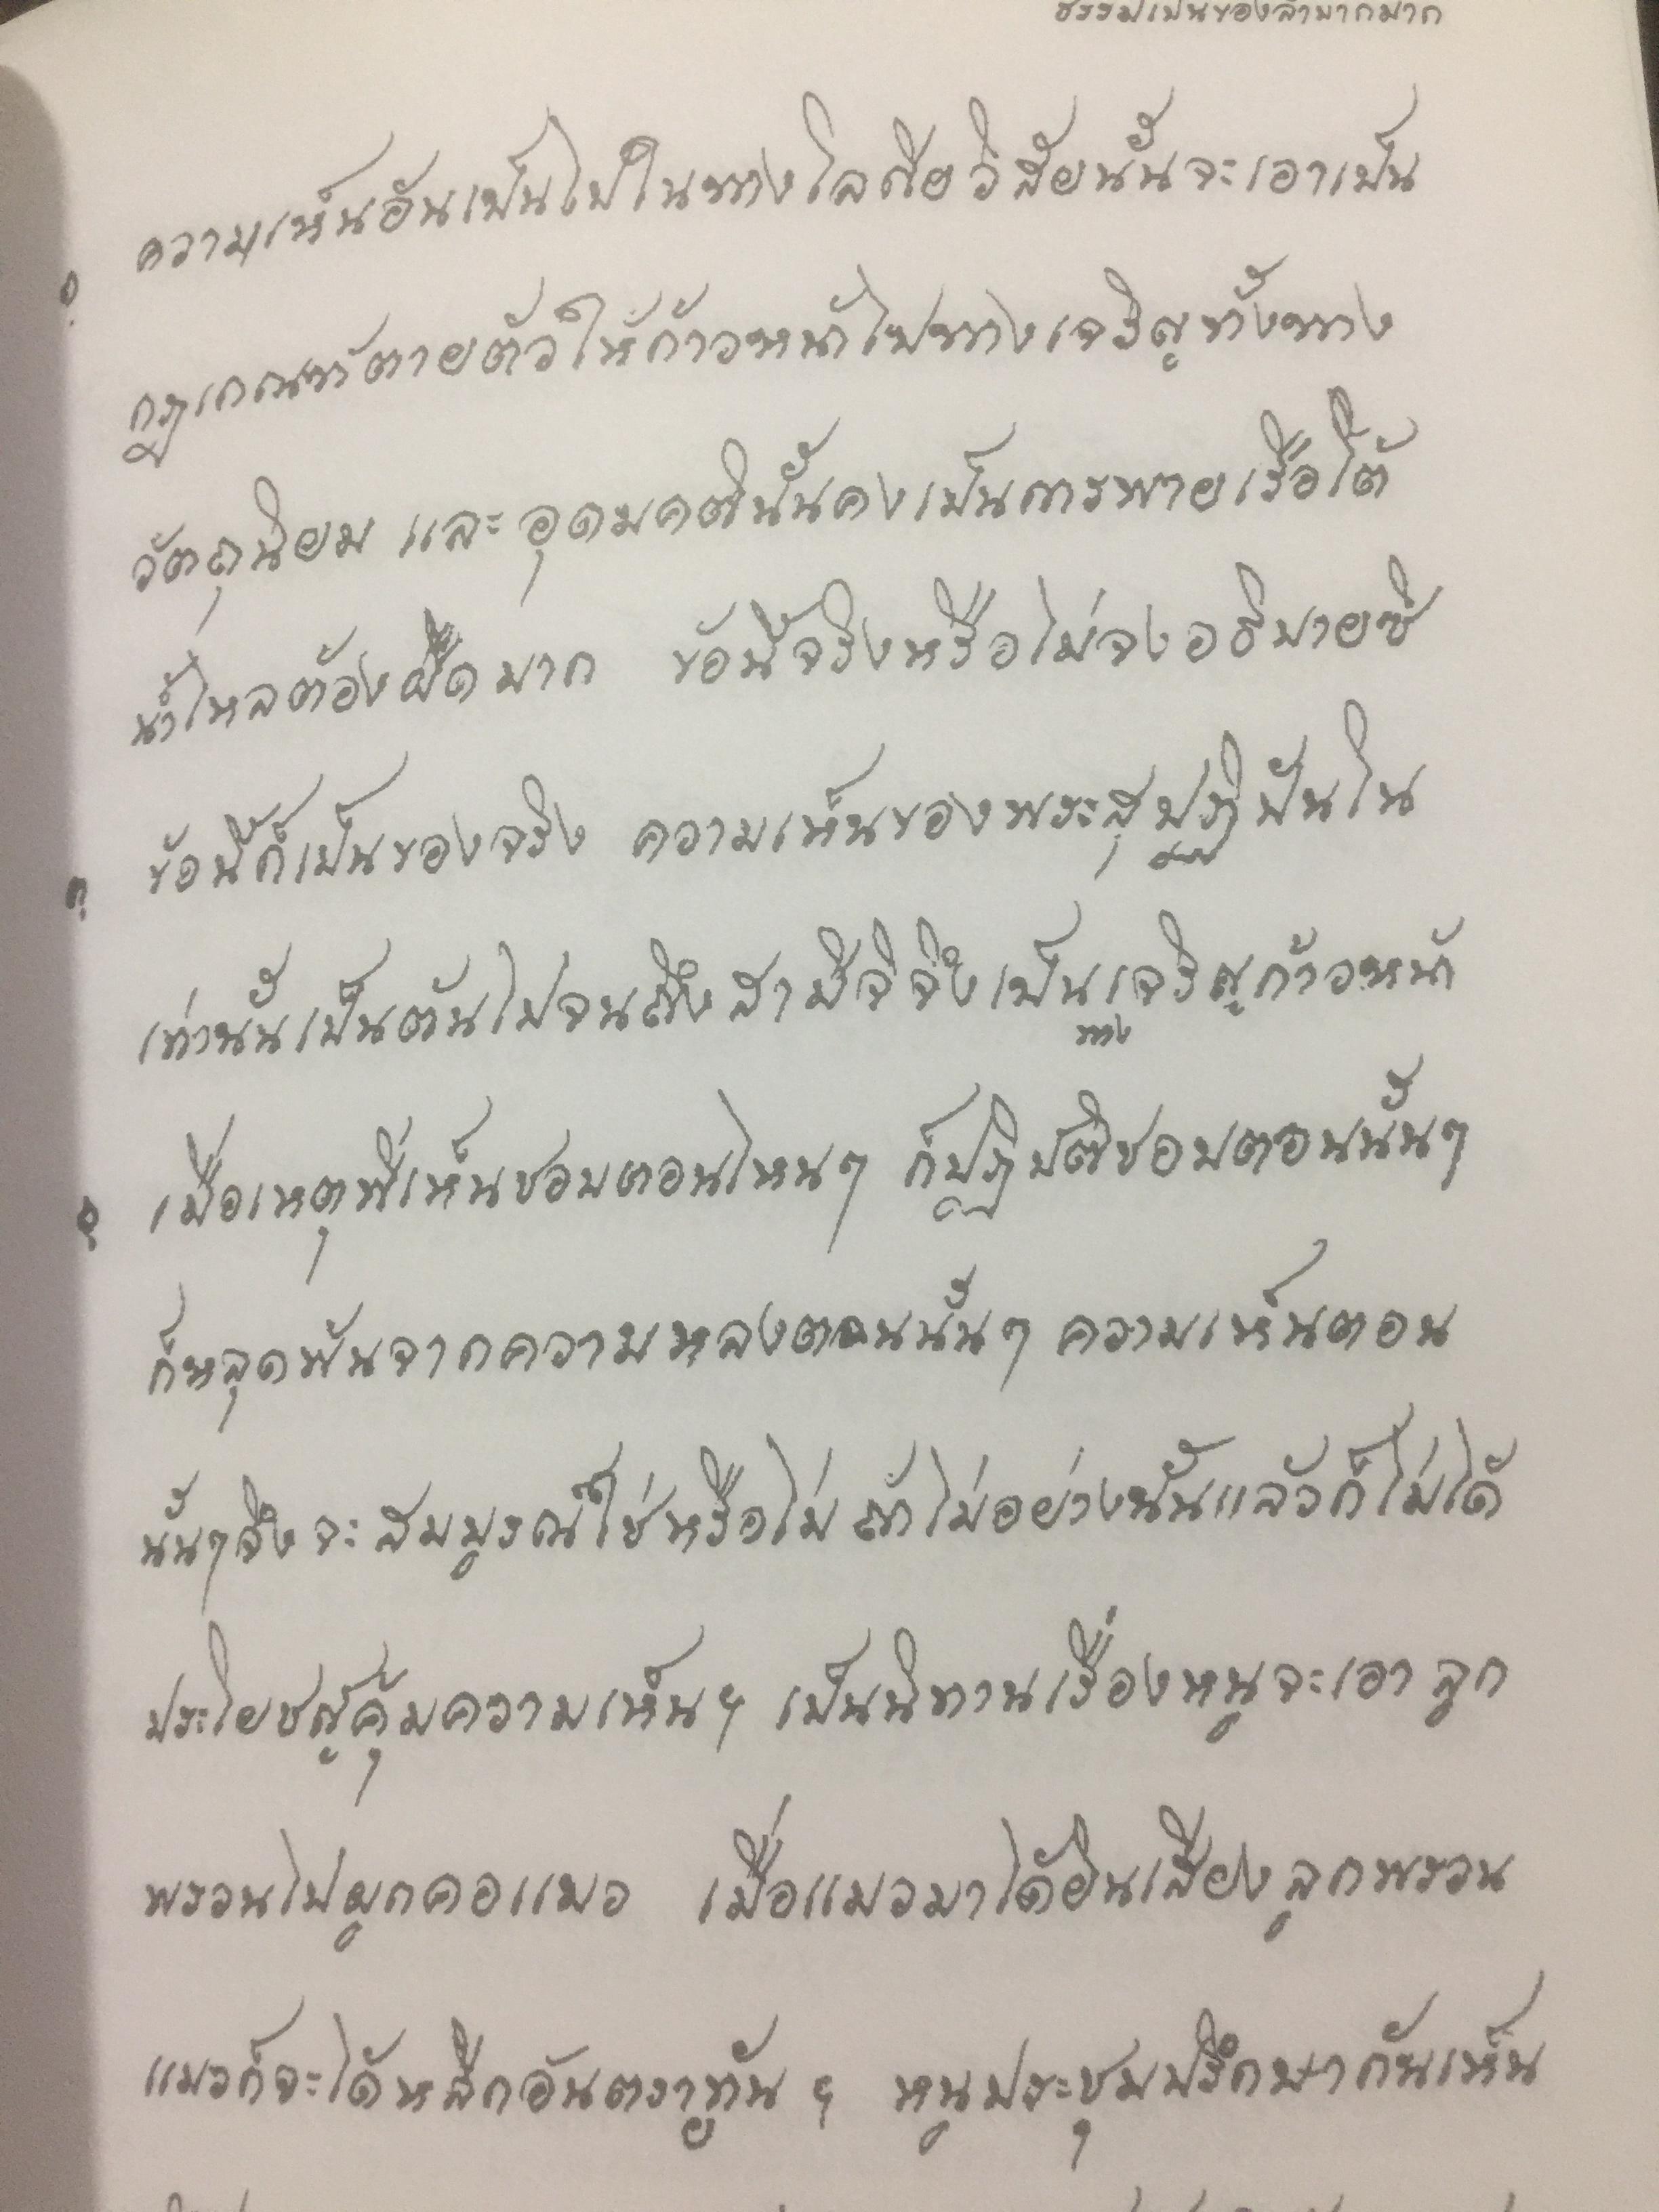 ธรรมเป็นของลำบากมาก
ความเห็นอันเป็นไปในทางโลกียวิสัยนั้นจะเอาเป็น
กฎเกณฑ์ตายตัวให้ก้าวหน้าไปทางเจริญทั้งทาง
วัตถุนิยม และ อุดมคตินั้นคงเป็นการพายเรือโต้
น้ำไหลต้องฝืดมาก ข้อนี้จริงหรือไม่จงอธิบายซิ
ข้อนี้ก็เป็นของจริง ความเห็นของพระสุปฏิปันโน
เท่านั้นเป็นต้นไปจนถึงสามีจิจึงเป็นทางเจริญก้าวหน้า
เมื่อเหตุที่เห็นชอบตอนไหนๆ ก็ปฏิบัติชอบตอนนั้นๆ
ก็หลุดพ้นจากความหลงตอนนั้นๆ ความเห็นตอน
นั้นๆจึงจะสมบูรณ์ใช่หรือไม่ ถ้าไม่อย่างนั้นแล้วก็ไม่ได้
ประโยชน์คุ้มความเห็นฯ เป็นนิทานเรื่องหนูจะเอาลูก
พรวนไปผูกคอแมว เมื่อแมวมาได้ยินเสียงลูกพรวน
แมวก็จะได้หลีกอันตรายทัน ฯ หนูประชุมปรึกษากันเห็น